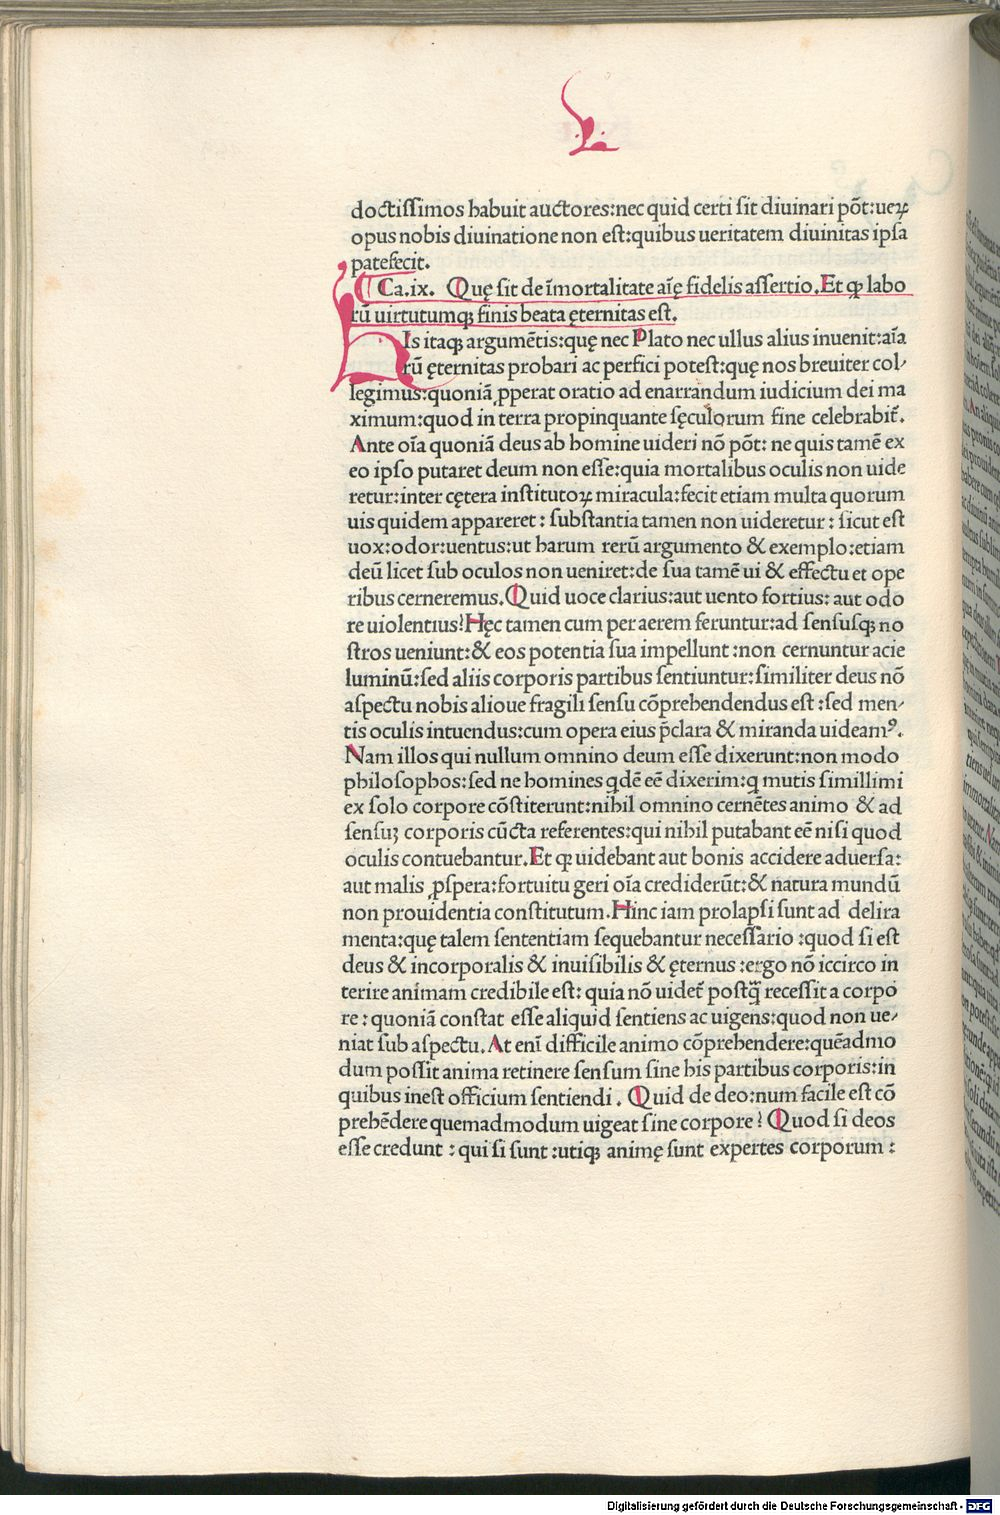 L.
doctissimos habuit auctores:nec quid certi sit diuinari põt:ueꝝ
opus nobis diuinatione non est:quibus ueritatem diuinitas ipsa
patefecit.
¶ Ca.ix. Quę sit de ĩmortalitate aĩę fidelis assertio.Et ꝙ labo
rũ uirtutumqꝫ finis beata ęternitas est.
His itaqꝫ argumẽtis:quę nec Plato nec ullus alius inuenit:aĩa
rũ ęternitas probari ac perfici potest:quę nos breuiter col⸗
legimus:quoniã ꝓperat oratio ad enarrandum iudicium dei ma
ximum:quod in terra propinquante sęculorum fine celebrabit̃.
Ante oĩa quoniã deus ab homine uideri nõ põt: ne quis tamẽ ex
eo ipso putaret deum non esse:quia mortalibus oculis non uide
retur:inter cętera institutoꝝ miracula:fecit etiam multa quorum
uis quidem appareret : substantia tamen non uideretur : sicut est
uox:odor:uentus:ut harum rerũ argumento & exemplo:etiam
deũ licet sub oculos non ueniret:de sua tamẽ ui & effectu et ope
ribus cerneremus.Quid uoce clarius:aut uento fortius: aut odo
re uiolentius?Hęc tamen cum per aerem feruntur:ad sensusqꝫ no
stros ueniunt:& eos potentia sua impellunt :non cernuntur acie
luminũ:sed aliis corporis partibus sentiuntur:similiter deus nõ
aspectu nobis alioue fragili sensu cõprehendendus est :sed men⸗
tis oculis intuendus:cum opera eius p̃clara & miranda uideamꝰ.
Nam illos qui nullum omnino deum esse dixerunt:non modo
philosophos:sed ne homines qdẽ eẽ dixerim:q mutis simillimi
ex solo corpore cõstiterunt:nihil omnino cernẽtes animo & ad
sensuꝫ corporis cũcta referentes:qui nihil putabant eẽ nisi quod
oculis contuebantur.Et ꝙ uidebant aut bonis accidere aduersa:
aut malis ꝓspera:fortuitu geri oĩa crediderũt:& natura mundũ
non prouidentia constitutum.Hinc iam prolapsi sunt ad delira
menta:quę talem sententiam sequebantur necessario :quod si est
deus & incorporalis & inuisibilis & ęternus :ergo nõ iccirco in
terire animam credibile est: quia nõ uidet̃ postq̃ recessit a corpo
re : quoniã constat esse aliquid sentiens ac uigens:quod non ue⸗
niat sub aspectu.At enĩ difficile animo cõprehendere:quẽadmo
dum possit anima retinere sensum sine his partibus corporis:in
quibus inest officium sentiendi . Quid de deo:num facile est cõ
prehẽdere quemadmodum uigeat sine corpore? Quod si deos
esse credunt : qui si sunt :utiqꝫ animę sunt expertes corporum :
Digitalisierung gefördert durch die Deutsche Forschungsgemeinschaft - DFG